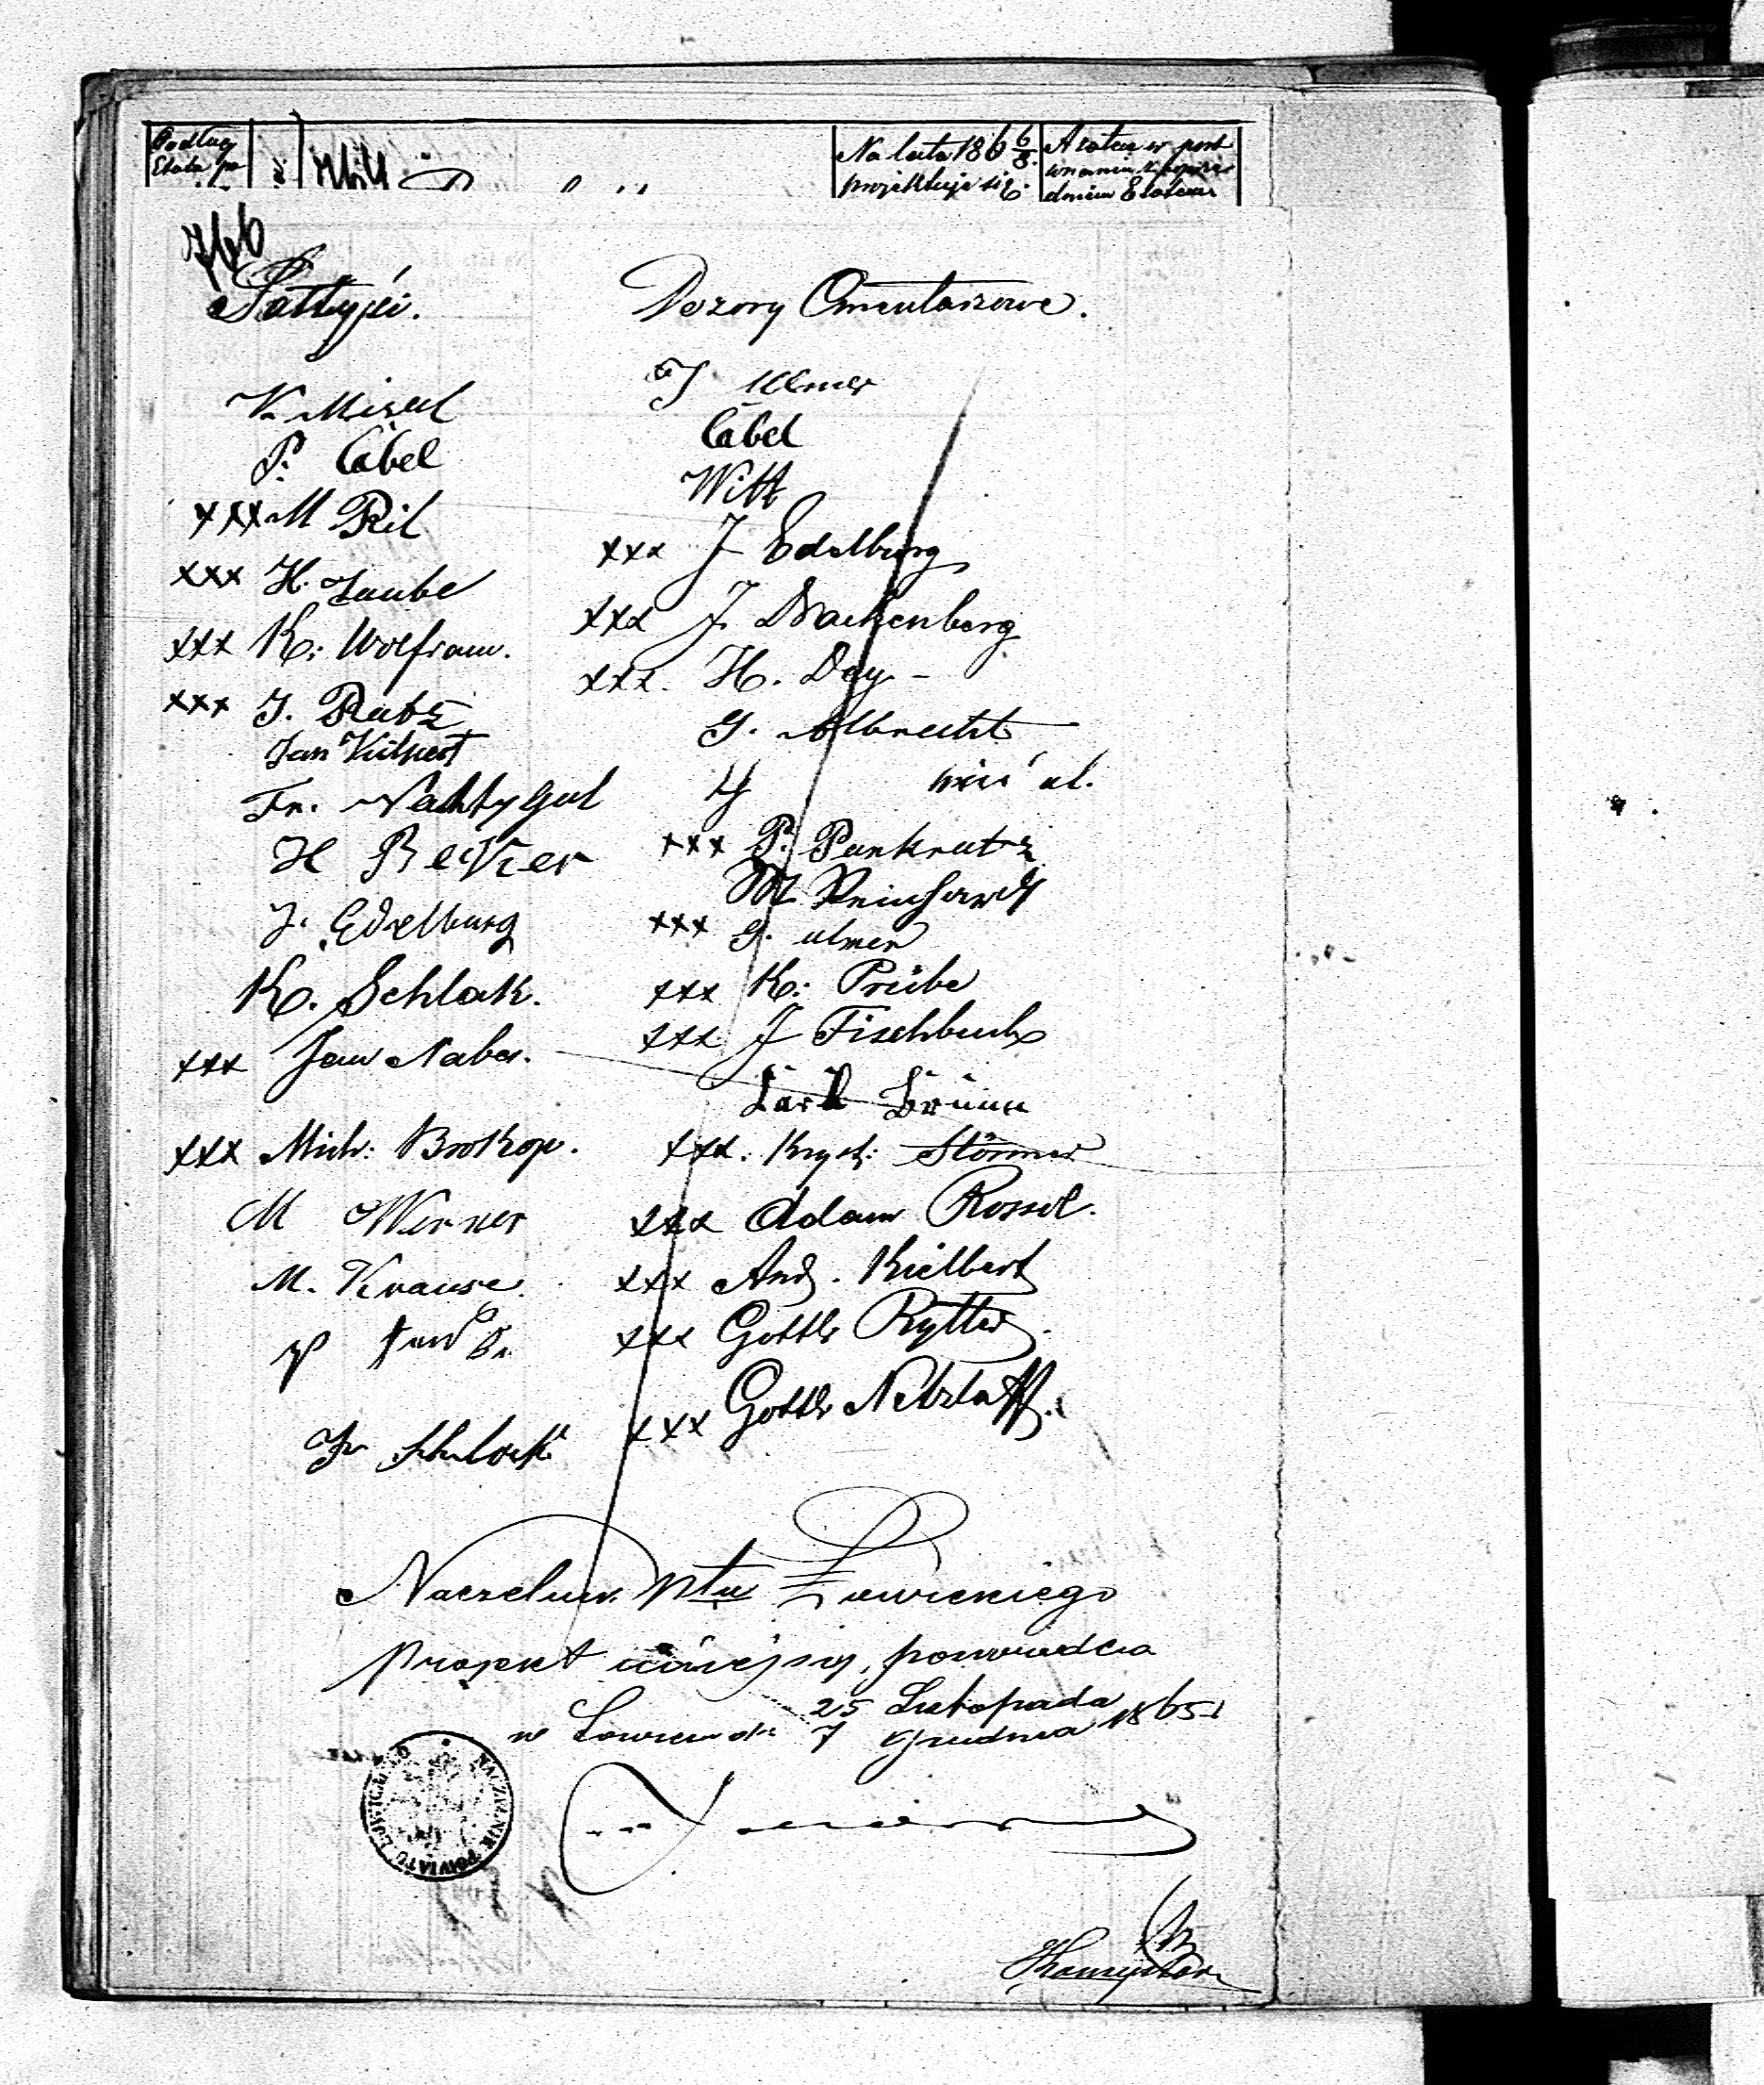 Podług
Etatu
Na lata 186 6/8
projektuje się
A zatem w poró
wnaniu z poprze
dnim Etatem
766
Sołtysi.
K. Mizel
P. Cabel
xxx M Ril
xxx H. Taube
xxx K: Wolfram.
xxx J. Ratz
Jan Kilpert
Fr. Nachtygal
H Bekier
J. Edelburg
K. Schlak.
xxx Jan Naber.
xxx Mich: Brokop.
M Werner
M. Krause.
Dozory Cmentarzowe.
J Ulmer
Cabel
Witt
xxx J Edelburg
xxx J. Drachenberg
xxx. H. Dey
G. Albrecht
xxx P. Pankratz
M Reinhardt
xxx G. ulmer
xxx K: Priebe
xxx J Fischbuch
Karl Brünn
xxx. Kryst: Störmer
xxx Adam Rossol.
xxx And. Kielbert
xxx Gottlb Rytter.
xxx Gottlb Netzlaff.
Naczelnik Ptu Łowickiego
Projekt niniejszy, poswiadcza
w Łowiczu dn 25 Listopada
7 Grudnia 1865 r
NACZELNIK POWIATU ŁOWICKIEGO